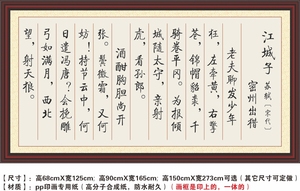 江城子 苏轼〔宋代〕
密州出猎
老夫聊发少年
狂，左牵黄，右擎
苍，锦帽貂裘，千
骑卷平冈。为报倾
城随太守，亲射
虎，看孙郎。
酒酣胸胆尚开
张。鬓微霜，又何
妨！持节云中，何
日遣冯唐？会挽雕
弓如满月，西北
望，射天狼。
【尺寸】：高68cmX宽125cm; 高90cmX宽165cm; 高150cmX宽273cm可选（其它尺寸可定做）
【材质】：pp印画专用纸（高分子合成纸，防水耐久）（画框是印上的、一体的）